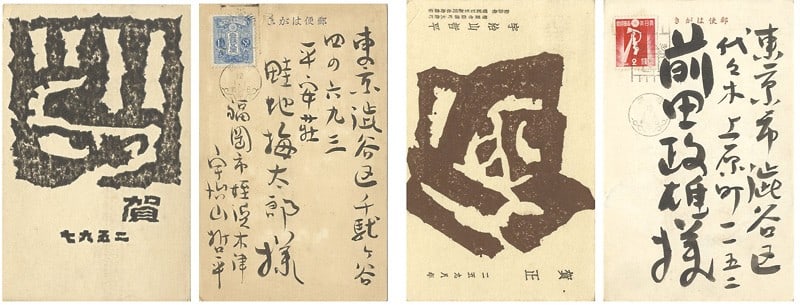 賀
二五九七
郵便はがき
東京澁谷区千駄ヶ谷
四の六九三
平安荘
畦地梅太郎様
福岡市姪浜木津
宇治山哲平
宇治山哲平
賀正
郵便はがき
東京市澁谷区
代々木上原町一一五二
前田政雄様